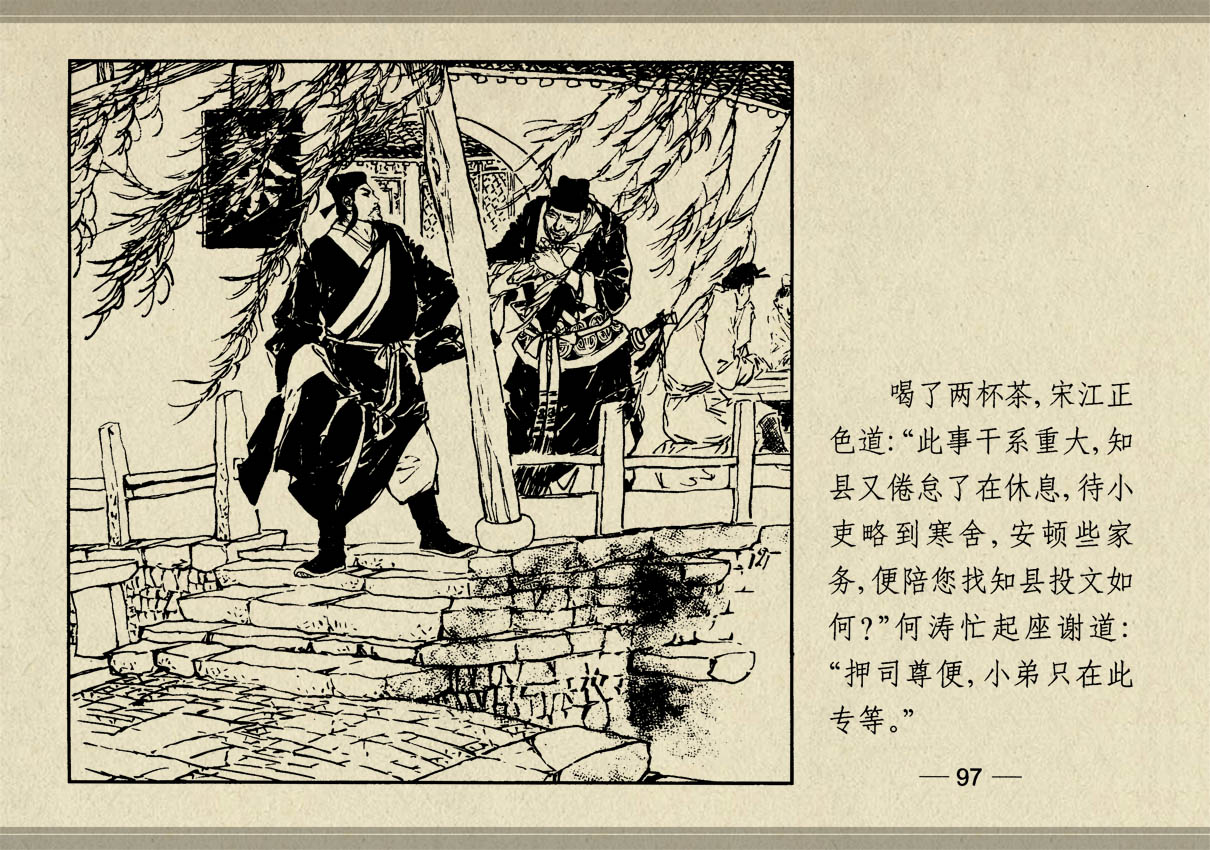 喝了两杯茶，宋江正
色道：“此事干系重大，知
县又倦怠了在休息，待小
吏略到寒舍，安顿些家
务，便陪您找知县投文如
何？”何涛忙起座谢道：
“押司尊便，小弟只在此
专等。”
—97—